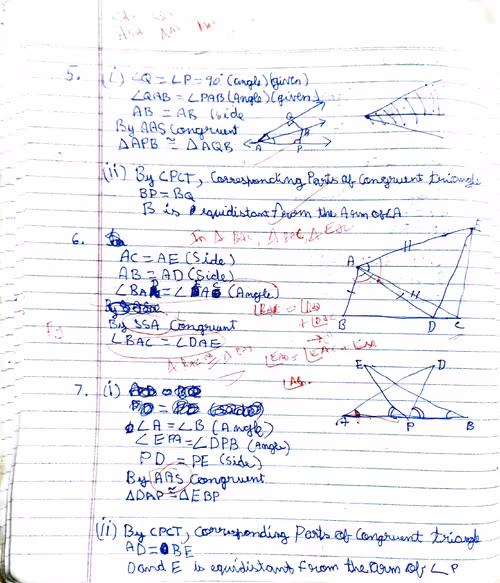 5. (i) ∠Q = ∠P = 90° (angle) (given)
∠QAB = ∠PAB (Angle) (given)
AB = AB (side
By AAS congruent
ΔAPB ≅ ΔAQB
A
B
Q
P
(ii) By CPCT, Corresponding Parts of Congruent triangle
BP = BQ
B is equidistant from the Arm of ∠A.
In Δ BAC, Δ
6.
AC = AE (Side)
AB = AD (Side)
(Angle)
By SSA Congruent
∠BAC = ∠DAE
A
B
D
C
E
7. (i)
∠A = ∠B (Angle)
= ∠DPB (Angle)
PD = PE (Side)
By AAS Congruent
ΔDAP ≅ ΔEBP
E
D
A
P
B
(ii) By CPCT, Corresponding Parts of Congruent triangle
AD = BE
D and E is equidistant from the arm of ∠P